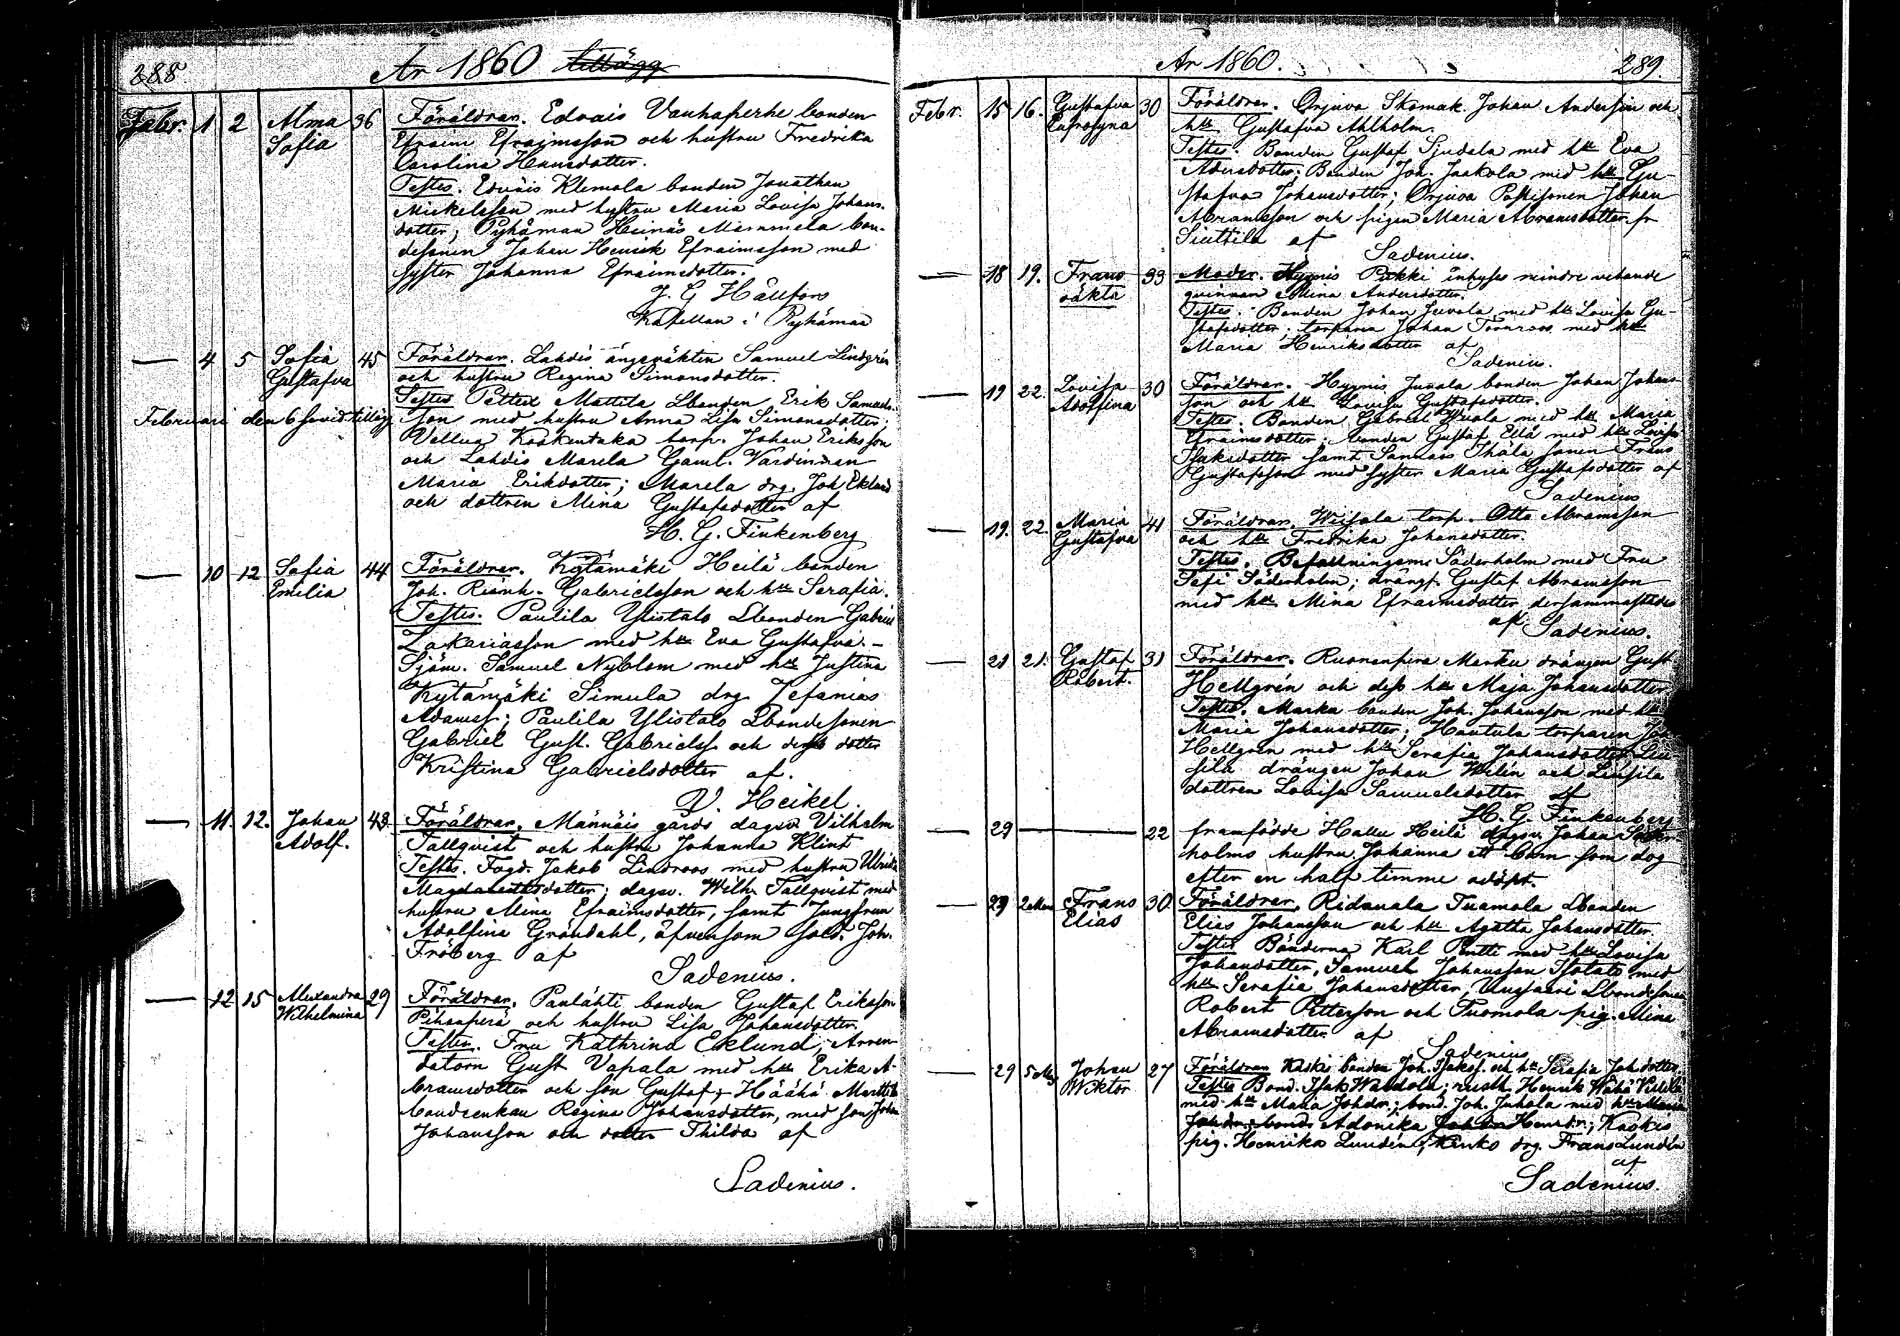 288 År 1860 tillägg
Febr. 1 2 Alma 36 Föräldrar. Edvais Vanhaperhe bonden
Sofia Efraim Efraimsson och hustru Fredrika
Carolina Hansdotter.
Testes. Edväis Klemola bonden Jonathan
Mickelsson med hustru Maria Lovisa Johans-
dotter; Pyhämaa Heinäs Mämmelä bon-
desonen Johan Henrik Efraimsson med
syster Johanna Efraimsdotter.
J. G Hällfors
Kapellan i Pyhämaa
— 4 5 Sofia 45 Föräldrar. Lahdis ängevakten Samuel Lindgrén
Gustafva och hustru Regina Simonsdotter.
Testes Mattila Lbonden Erik Samuels-
Februari den 6 tillägg son med hustru Anna Lisa Simonsdotter;
Vellua Koskentaka torp. Johan Eriksson
och Lahdis Marela Gaml. Värdinnan
Maria Eriksdotter; Marela drg. Joh Eklund
och dottren Mina Gustafsdotter af
H. G. Finkenberg
— 10 12 Sofia 44 Föräldrar. Kytämäki Heilä bonden
Emilia Joh. Rienh. Gabrielsson och hu Serafia.
Testes. Paulila Ylistalo Lbonden Gabriel
Zakariasson med hu Eva Gustafva. –
Sjöm. Samuel Nyblom med hu Justina
Kytämäki Simula drg Zefanias
Adamss; Paulila Ylistalo Lbondesonen
Gabriel Gust. Gabrielss och dess dotter
Kristina Gabrielsdotter af.
V. Heikel.
— 11. 12. Johan 43 Föräldrar. Männäis gårds dagsv Vilhelm
Adolf. Tallqvist och hustru Johanna Klint
Testes. Fogd. Jakob Lindroos med hustru Ulrika
Magdalensdotter; dagsv. Wilh. Tallqvist med
hustru Mina Efraimsdotter, samt Jungfrun
Adolfina Gröndahl, äfvensom Sold. Joh.
Fröberg af
Sadenius.
— 12 15 Alexandra 29 Föräldrar. Pantähti bonden Gustaf Eriksson
Wilhelmina Pihanperä och hustru Lisa Johansdotter.
Testes. Fru Kathrina Eklund; Arren-
datorn Gust Vapala med hu Erika A-
bramsdotter och son Gustaf; Häähä Marttila
bondeenkan Regina Johansdotter, med son Johan
Johansson och dotter Thilda af
Sadenius.
År 1860. 289.
Febr. 15 16. Gustafva 30 Föräldrar. Orjuva Skomak. Johan Andersson och
Eufrosyna hu Gustafva Ahlholm.
Testes. Bonden Gustaf Sjudala med hu Eva
Adersdotter; Bonden Joh. Jaakola med hu Gu-
stafva Johansdotter; Orjuva Johan
Abramsson och pigen Maria Abramsdotter fr
Siuttila af
Sadenius.
— 18 19. Frans 33 Moder. Hygnis Pukki inhyses mindre vetande
oäkta qvinnan Mina Andersdotter.
Testes. Bonden Johan Juvola med hu Lovisa Gu-
stafsdotter. torparen Johan Törnroos med hu
Maria Henriksdotter af
Sadenius.
— 19 22. Lovisa 30 Föräldrar. Hygnis Juvala bonden Johan Johans
Adolfina son och hu Lovisa Gustafsdotter.
Testes. Bonden Gabriel med hu Maria
Efraimsdotter; bonden Gustaf Ellä med hu Lovisa
Isaksdotter samt Sannais Ihala sonen Frans
Gustafsson med syster Maria Gustafsdotter af
Sadenius
— 19. 22. Maria 41 Föräldrar. torp. Otto Abramsson
Gustafva och hu Fredrika Johansdotter.
Testes. Befallningsm. Söderholm med Fru
Sofi Söderholm; drängf. Gustaf Abramsson
med hu Mina Efraimsdotter dersammastädes
af Sadenius.
— 21 21. Gustaf 31 Föräldrar. Ruonanperä Marku drängen Gust.
Robert. Hellgrén och dess hu Maja Johansdotter.
Testes. Marku bonden Joh. Johansson med hu
Maria Johansdotter; Hautula torparen Joh
Hellgren med hu Serafia Johansdotter;
sila drängen Johan Welin och Linsila
dottren Lovisa Samuelsdotter af
H. G. Finkenberg
— 29 — 22 framfödde Hallu Heilä dagsv Johan Söder-
holms hustru Johanna ett barn som dog
efter en half timme odöpt.
— 29 2 Mars Frans 30 Föräldrar. Ridauala Tuomola Lbonden
Elias Elias Johansson och hu Agatha Johansdotter.
Testes Bönderna Karl Pentti med hu Lovisa
Johansdotter, Samuel Johansson Isotalo med
hu Serafia Johansdotter; Lbondesonen
Robert Pettersson och Tuomola pig. Mina
Abramsdotter af
Sadenius
— 29 5 Ms Johan 27 Föräldrar Kaskis bonden Joh. Isakss. och hu Serafia Joh:dotter.
Wiktor Testes Bond. Isak; rusth. Henrik
med hu Maria Joh:dr; bond. Joh. Juhola med hu Maria
Joh:dr. bond. Adonika Henrdr; Kaskis
pig. Henrika Lundén; Kinko drg. Frans Lundén
af
Sadenius.